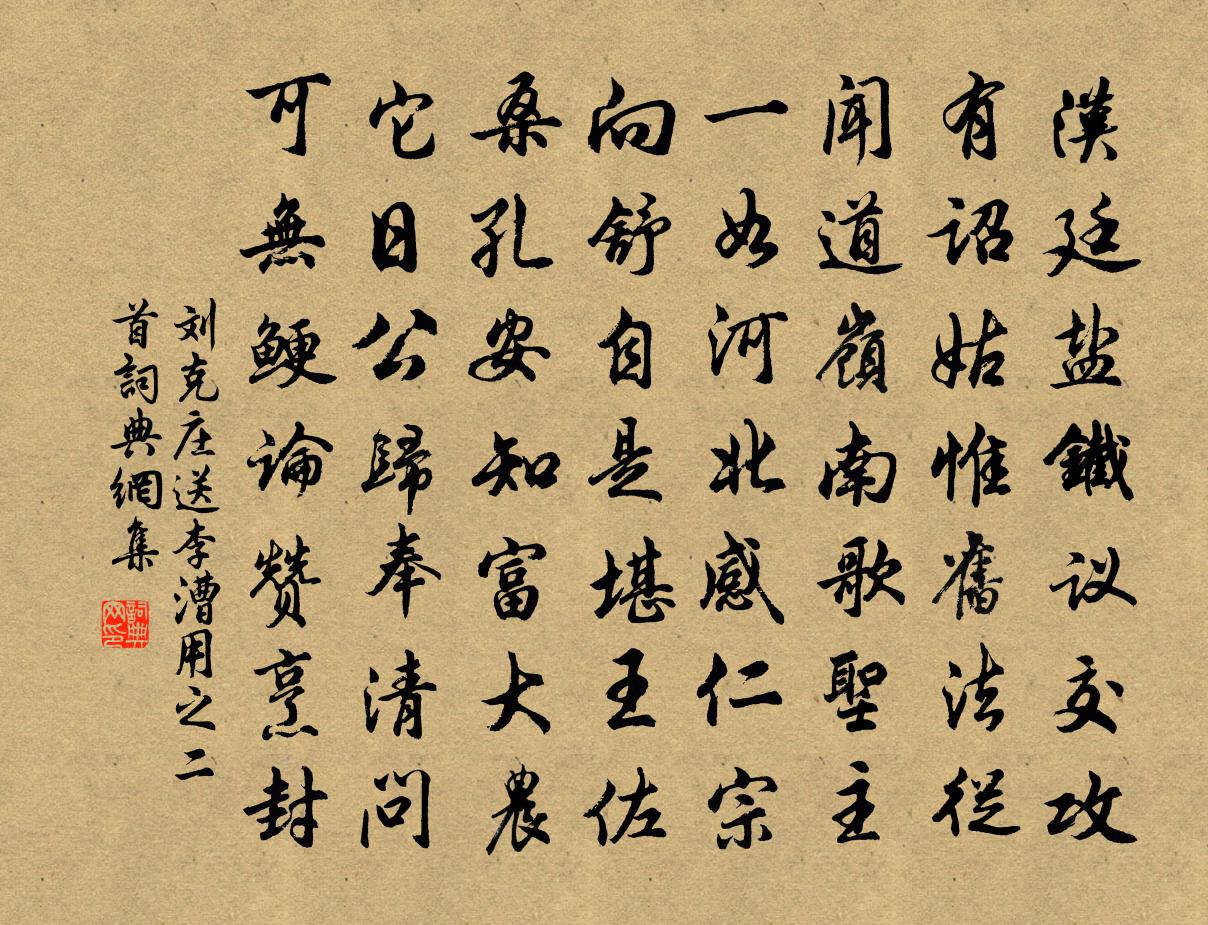 漢廷盐鐵议交攻
有诏姑惟舊法從
闻道嶺南歌聖主
一如河北感仁宗
向舒自是堪王佐
桑孔安知富大農
它日公歸奉清问
可無鲠論赞烹封
刘克庄送李漕用之二
首詞典網集
詞典网印